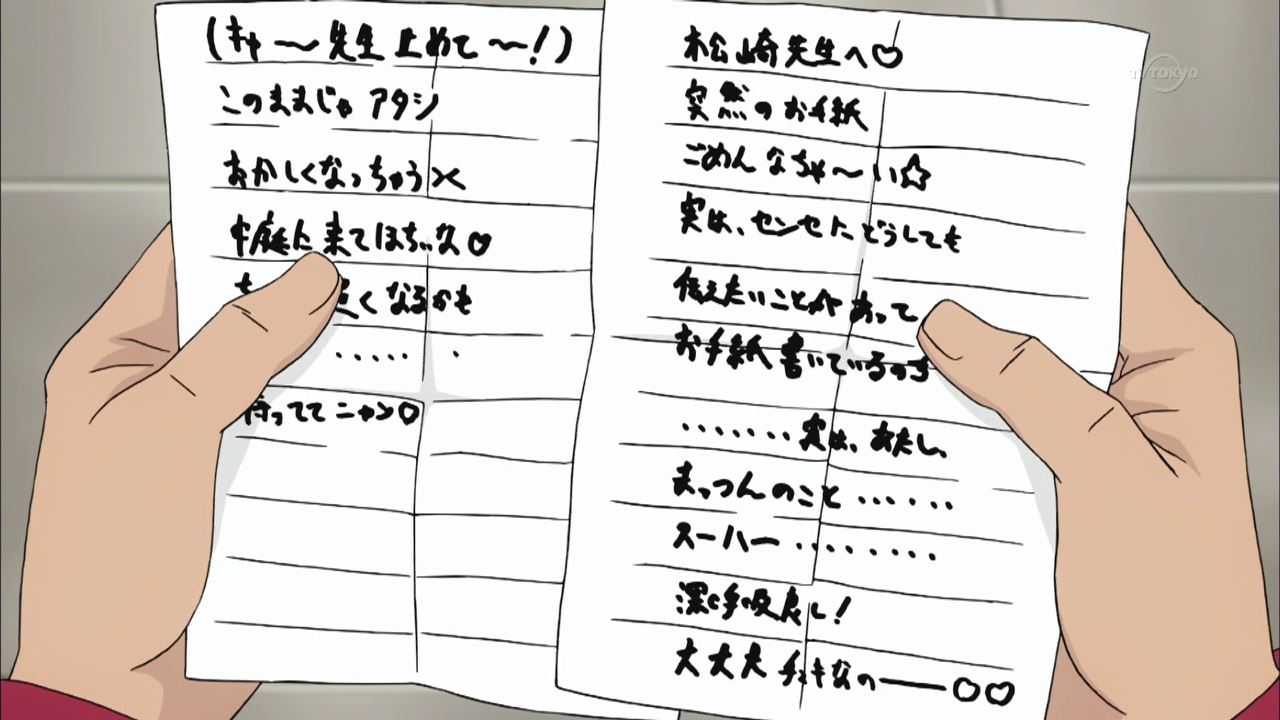 松崎先生へ♡
突然のお手紙
ごめんなちゃ〜い☆
実は、センセにどうしても
伝えたいことがあって
お手紙書いているのち
・・・・・・・実は、あたし、
まっつんのこと・・・・・・
スーハー・・・・・・・・
深呼吸良し!
大大大チュキなの――♡♡
(キャ〜先生止めて〜!)
このままじゃアタシ
おかしくなっちゃう><
中庭に来てほちぃな♡
くなるかも
・・・・・・
待っててニャン♡
TV TOKYO